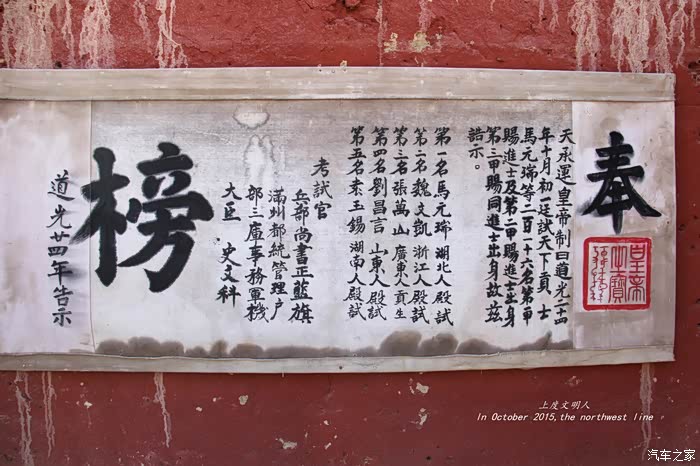 奉
天承運皇帝制曰道光二十四
年十月初一廷試天下貢士
馬元瑞等二百一十六名第一甲
賜進士及第二甲賜進士出身
第三甲賜同進士出身故茲
誥示。
第一名馬元瑞 湖北人殿試
第二名魏文凱 浙江人殿試
第三名張萬山 廣東人貢生
第四名劉昌言 山東人殿試
第五名袁玉錫 湖南人殿試
考試官
兵部尚書正藍旗
滿州都統管理户
部三庫事務軍機
大臣 史文科
榜
道光廿4年告示
皇帝
之寶
上度文明人
In October 2015,the northwest line
汽车之家